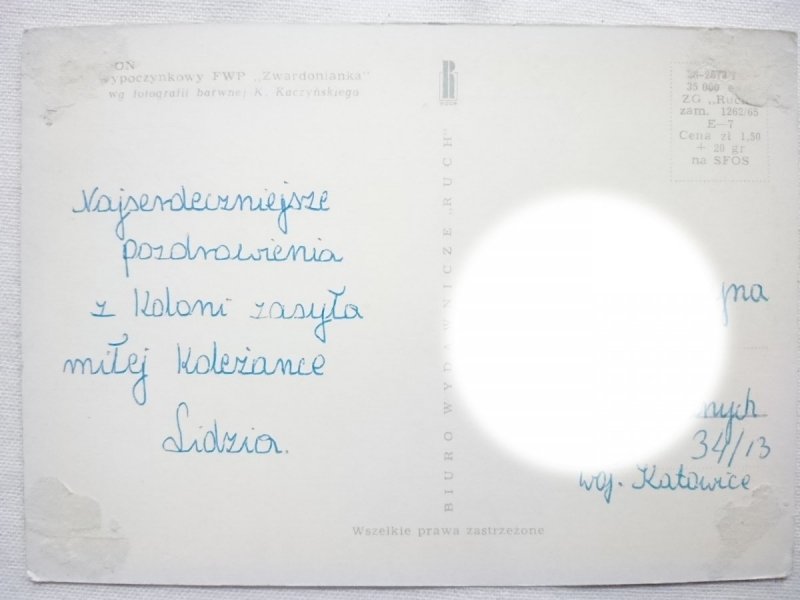 OŃ
wypoczynkowy FWP „Zwardonianka”
wg fotografii barwnej K. Kaczyńskiego
Najserdeczniejsze
pozdrowienia
z Koloni zasyła
miłej Koleżance
Lidzia.
BIURO WYDAWNICZE „RUCH”
35 000
ZG „Ruch
zam. 1262/65
E—7
Cena zł 1,50
+ 20 gr
na SFOS
jna
nych
34/13
woj. Katowice
Wszelkie prawa zastrzeżone